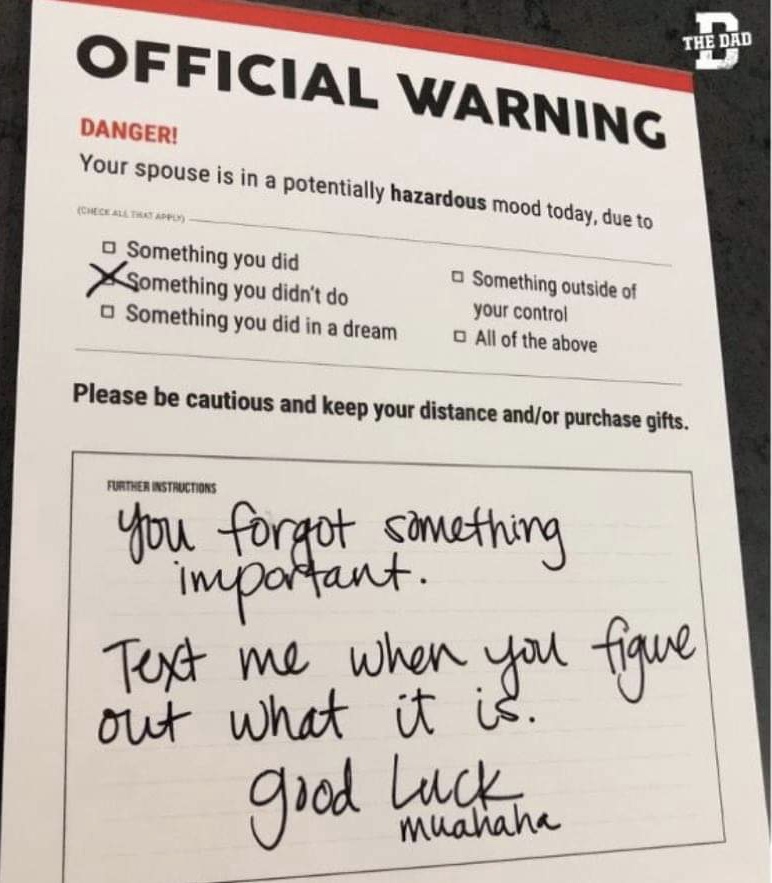 THE DAD
OFFICIAL WARNING
DANGER!
Your spouse is in a potentially hazardous mood today, due to
(CHECK ALL THAT APPLY)
Something you did
Something you didn't do
Something you did in a dream
Something outside of
your control
All of the above
Please be cautious and keep your distance and/or purchase gifts.
FURTHER INSTRUCTIONS
you forgot something
important.
Text me when you figure
out what it is.
good luck
muahaha